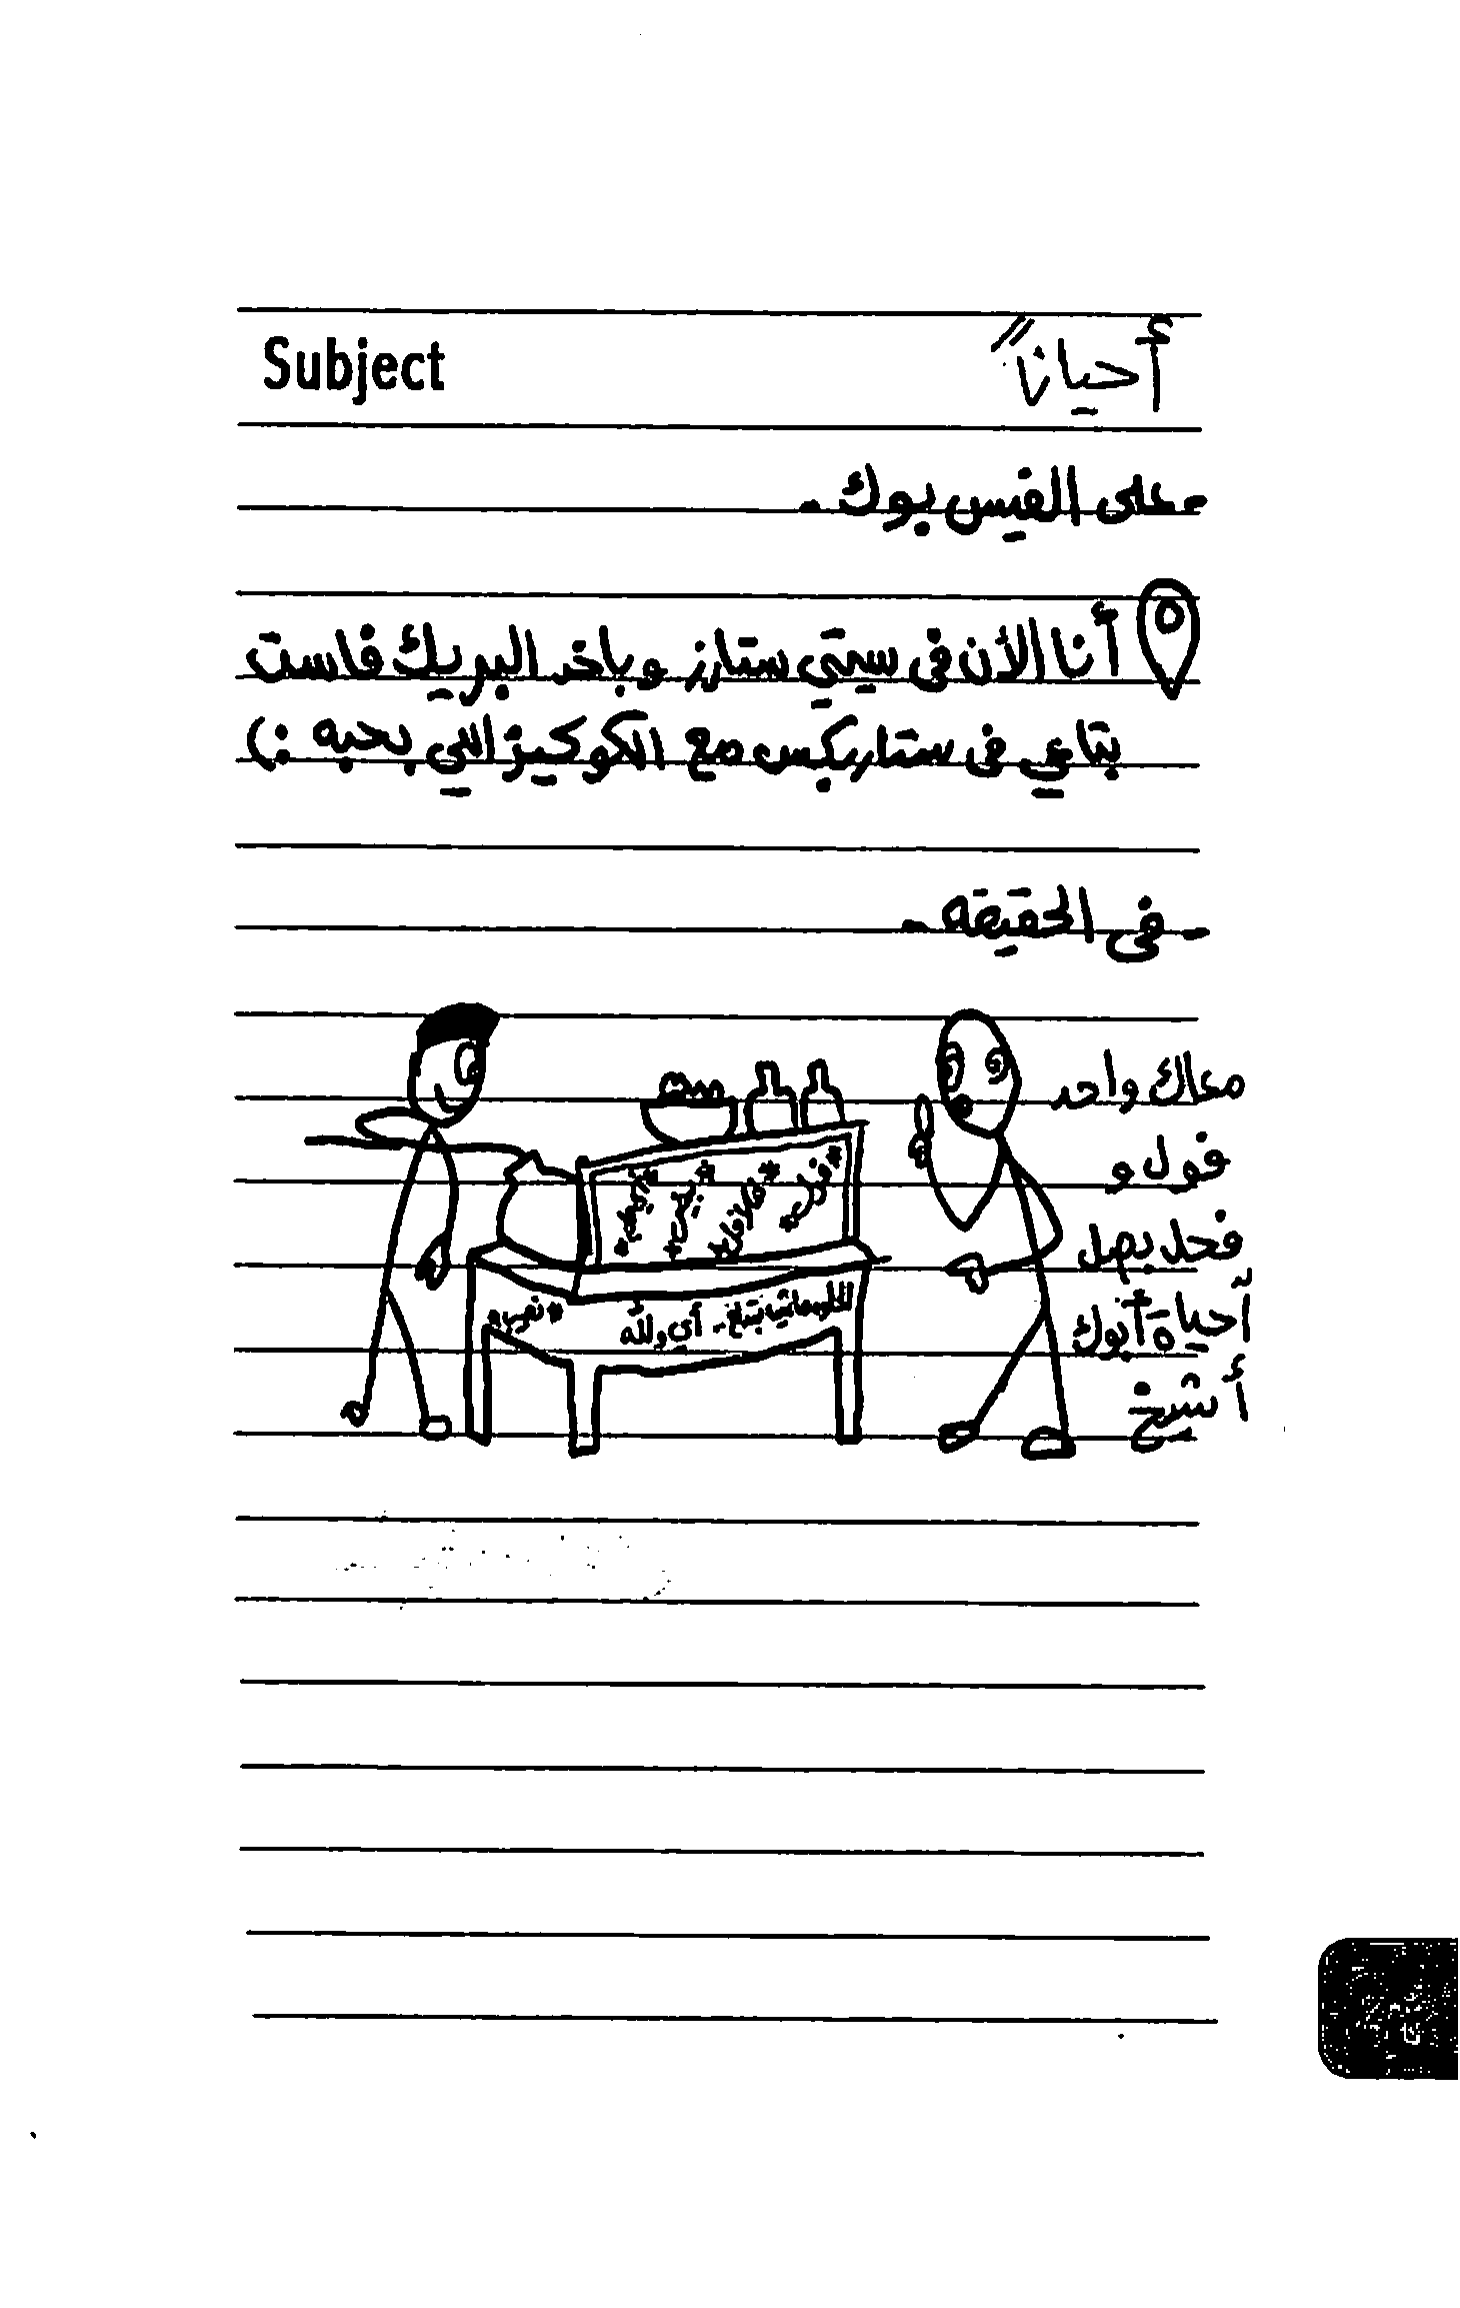 Subject
أحياناً
- على الفيس بوك -
أنا الأن فى سيتي ستارز وباخد البريك فاست
بتاعي فى ستاربكس مع الكوكيز اللي بحبه :)
- فى الحقيقه -
معاك واحد
فول و
فحل بصل
أحياة أبوك
أ شيخ
*فول*
*فلافل*
*بيض*
أي والله